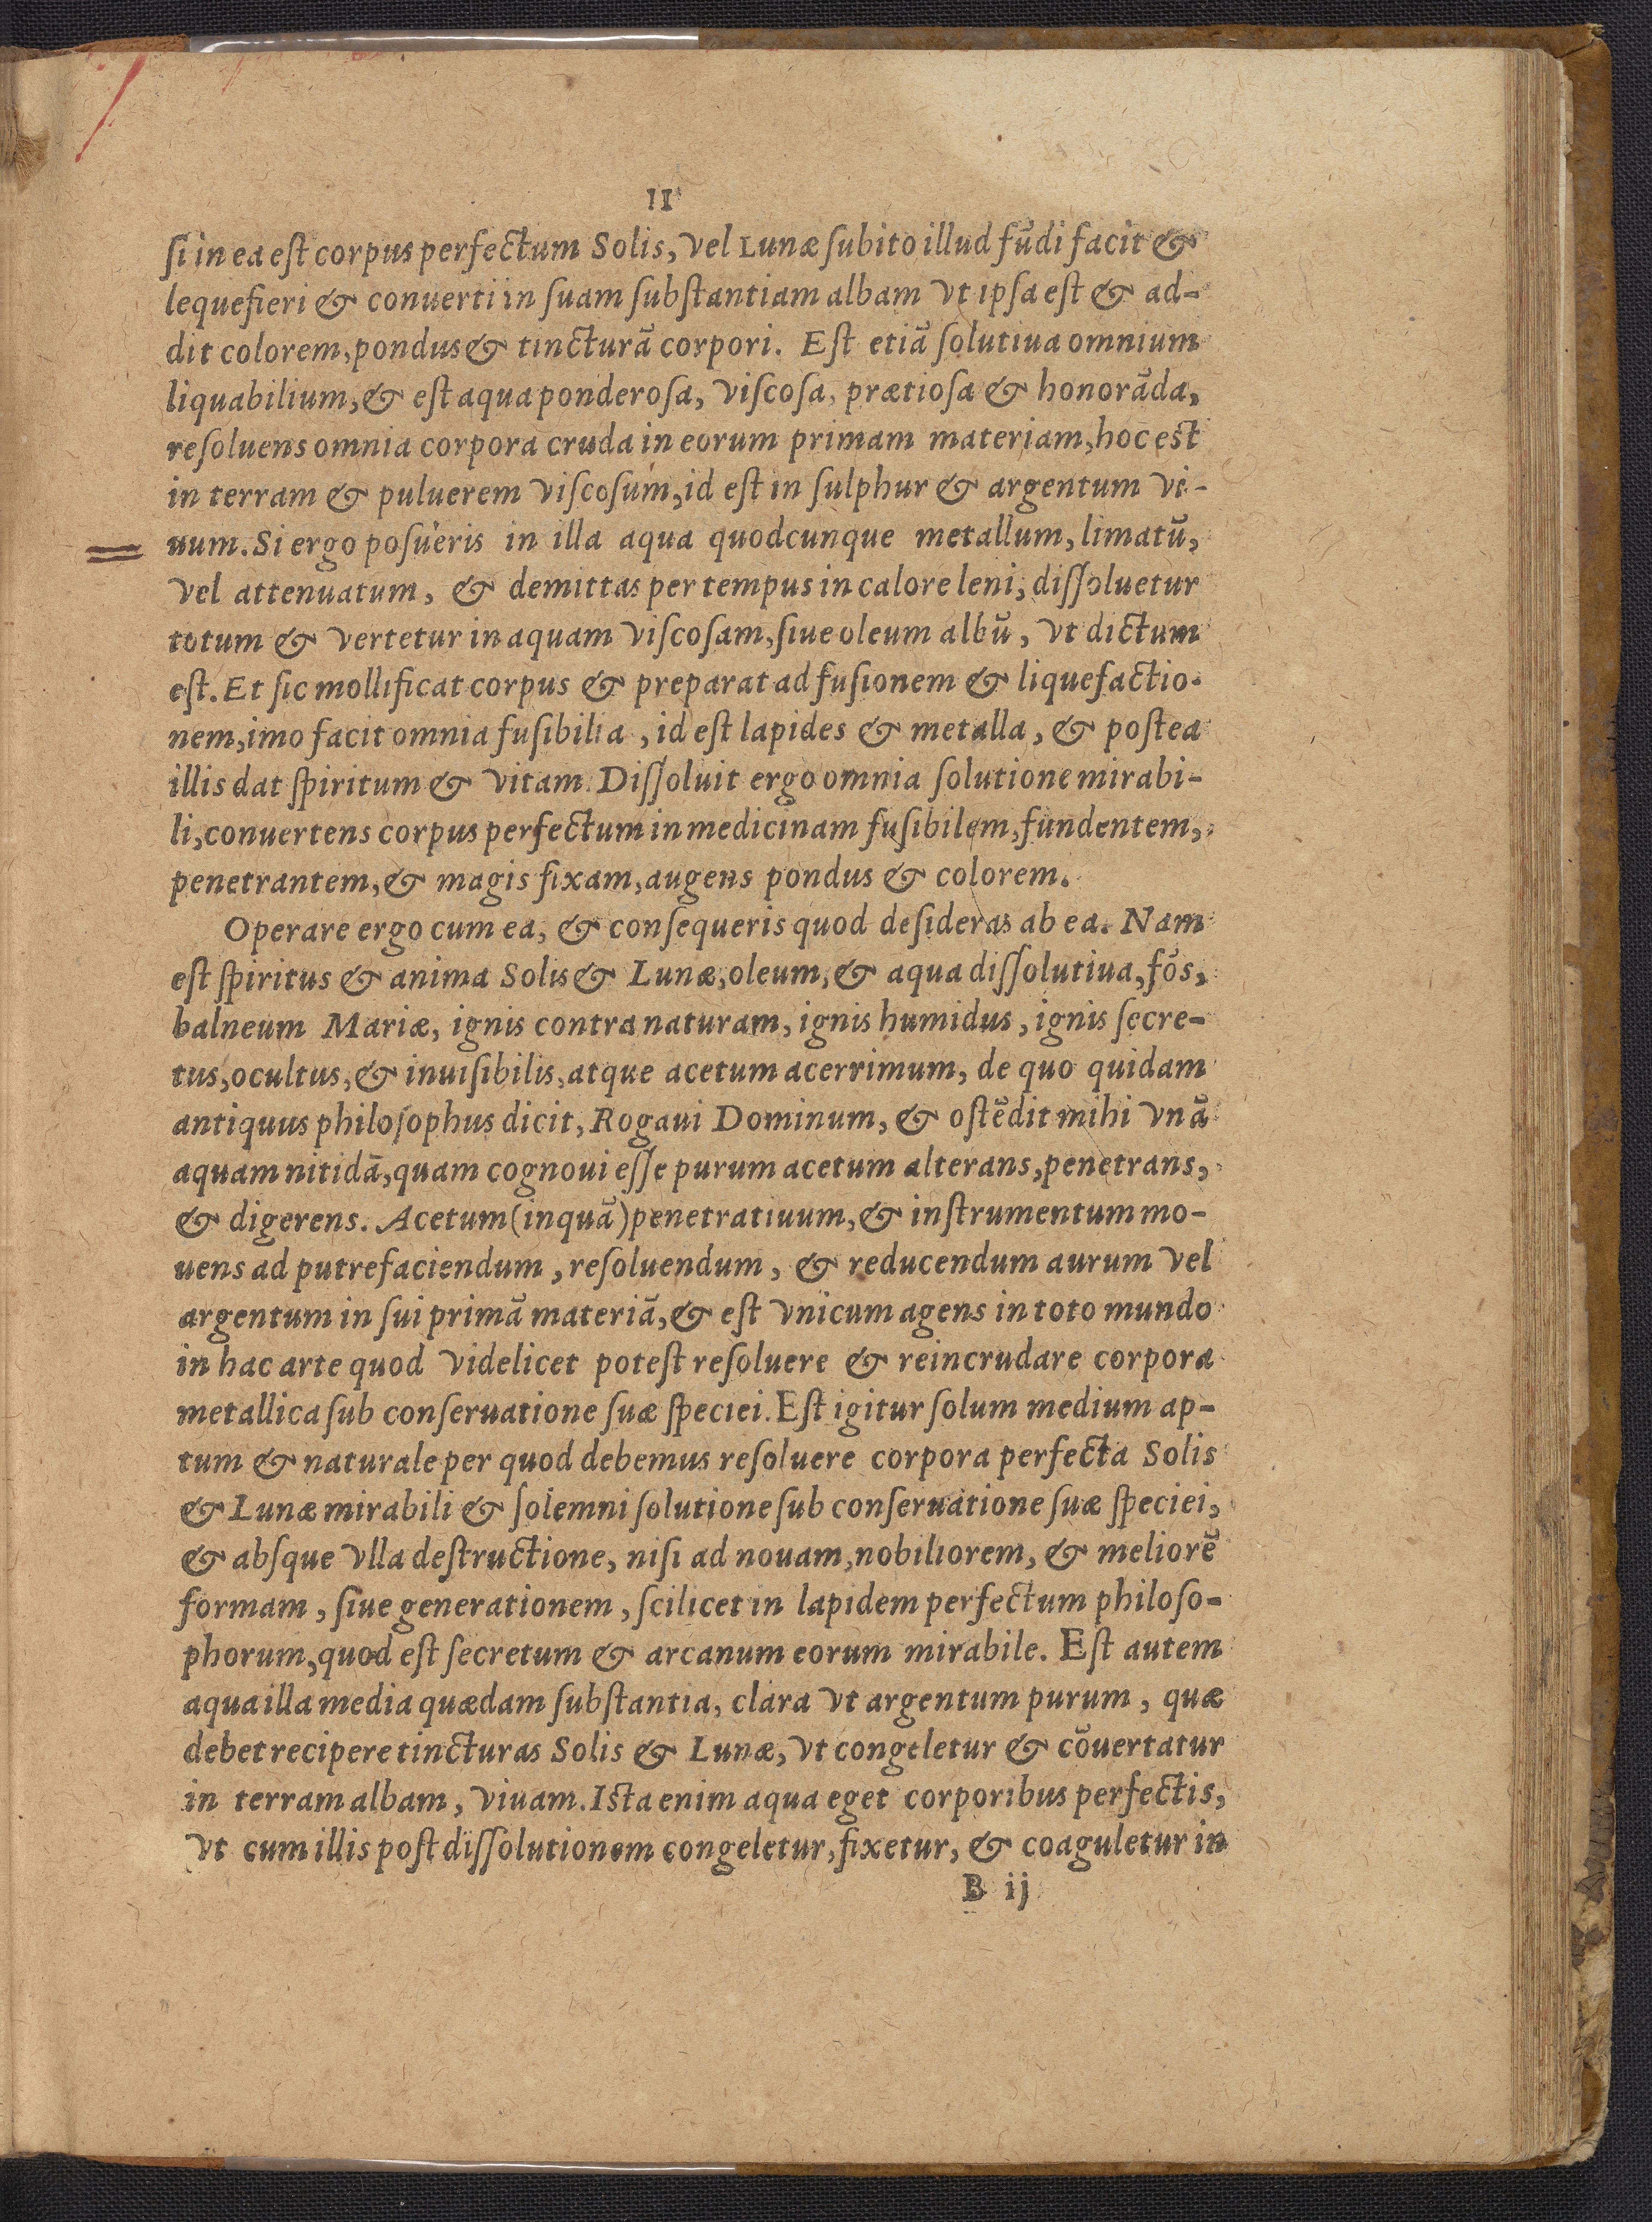 11
ſi in ea eſt corpus perfectum Solis, vel Lunæ ſubito illud fūdi facit &
lequefieri & conuerti in ſuam ſubſtantiam albam vt ipſa eſt & ad-
dit colorem, pondus & tincturā corpori. Eſt etiā ſolutiua omnium
liquabilium, & eſt aqua ponderoſa, viſcoſa, prætioſa & honorāda,
reſoluens omnia corpora cruda in eorum primam materiam, hoc eſt
in terram & puluerem viſcoſum, id eſt in ſulphur & argentum vi-
uum. Si ergo poſueris in illa aqua quodcunque metallum, limatū,
vel attenuatum, & demittas per tempus in calore leni, diſſoluetur
totum & vertetur in aquam viſcoſam, ſiue oleum albū, vt dictum
eſt. Et ſic mollificat corpus & preparat ad fuſionem & liquefactio-
nem, imo facit omnia fuſibilia, id eſt lapides & metalla, & poſtea
illis dat ſpiritum & vitam. Diſſoluit ergo omnia ſolutione mirabi-
li, conuertens corpus perfectum in medicinam fuſibilem, fundentem,
penetrantem, & magis fixam, augens pondus & colorem.
Operare ergo cum ea, & conſequeris quod deſideras ab ea. Nam
eſt ſpiritus & anima Solis & Lunæ, oleum, & aqua diſſolutiua, fōs,
balneum Mariæ, ignis contra naturam, ignis humidus, ignis ſecre-
tus, ocultus, & inuiſibilis, atque acetum acerrimum, de quo quidam
antiquus philoſophus dicit, Rogaui Dominum, & oſtēdit mihi vnā
aquam nitidā, quam cognoui eſſe purum acetum alterans, penetrans,
& digerens. Acetum (inquā) penetratiuum, & inſtrumentum mo-
uens ad putrefaciendum, reſoluendum, & reducendum aurum vel
argentum in ſui primā materiā, & eſt vnicum agens in toto mundo
in hac arte quod videlicet poteſt reſoluere & reincrudare corpora
metallica ſub conſeruatione ſuæ ſpeciei. Eſt igitur ſolum medium ap-
tum & naturale per quod debemus reſoluere corpora perfecta Solis
& Lunæ mirabili & ſolemni ſolutione ſub conſeruatione ſuæ ſpeciei,
& abſque vlla deſtructione, niſi ad nouam, nobiliorem, & meliorē
formam, ſiue generationem, ſcilicet in lapidem perfectum philoſo-
phorum, quod eſt ſecretum & arcanum eorum mirabile. Eſt autem
aqua illa media quædam ſubſtantia, clara vt argentum purum, quæ
debet recipere tincturas Solis & Lunæ, vt congeletur & cōuertatur
in terram albam, viuam. Iſta enim aqua eget corporibus perfectis,
vt cum illis poſt diſſolutionem congeletur, fixetur, & coaguletur in
B ij